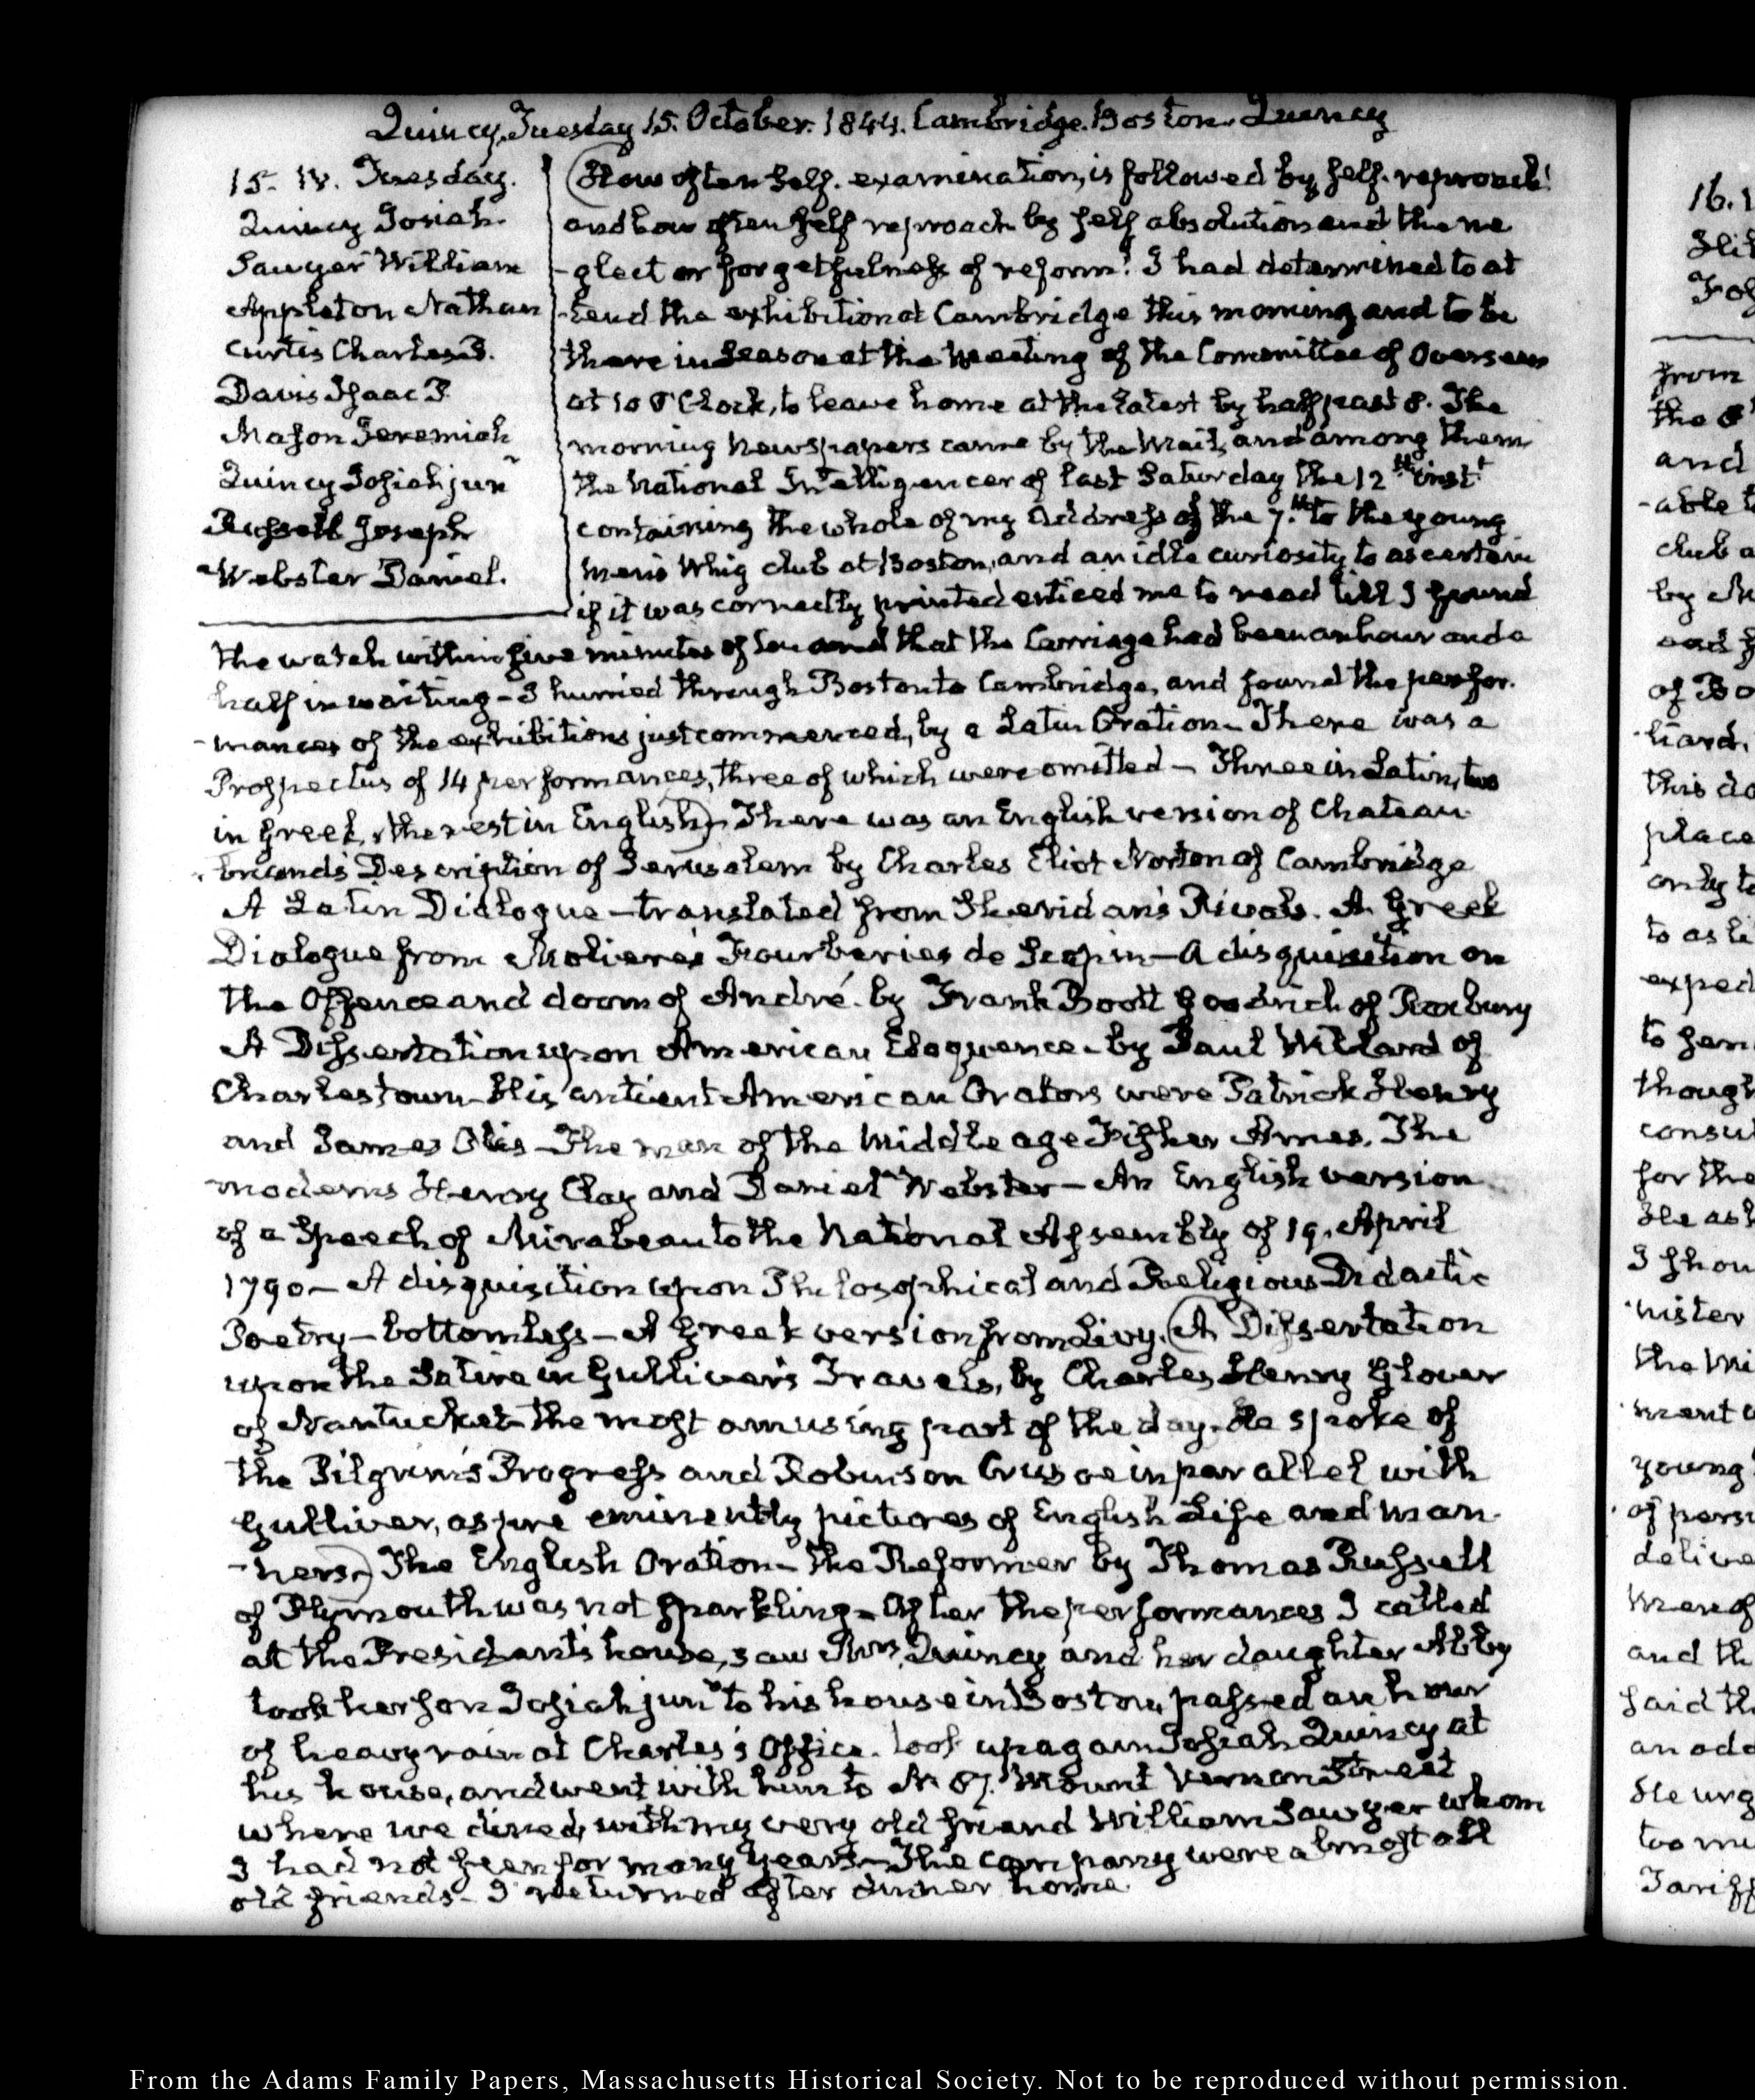 Quincy, Tuesday 15. October. 1844. Cambridge. Boston. Quincy
15. IV. Tuesday.
Quincy Josiah.
Sawyer William
Appleton Nathan
Curtis Charles P.
Davis Isaac P.
Mason Jeremiah
Quincy Josiah junr
Russell Joseph
Webster Daniel.
How often self-examination, is followed by self-reproach!
and how often self reproach by self absolution and the ne
-glect or forgetfulness of reform! I had determined to at
-tend the exhibition at Cambridge this morning and to be
there in season at the Meeting of the Committee of Overseers
at 10 O'Clock, to leave home at the latest by half past 8. The
morning Newspapers came by the Mail, and among them
the National Intelligencer of last Saturday the 12th instt
containing the whole of my Address of the 7.th to the young
men's Whig club at Boston, and an idle curiosity to ascertain
if it was correctly printed enticed me to read till I found
the watch within five minutes of ten and that the Carriage had been an hour and a
half in waiting - I hurried through Boston to Cambridge, and found the perfor-
-mances of the exhibitions just commenced, by a Latin Oration - There was a
Prospectus of 14 performances, three of which were omitted - Three in Latin, two
in Greek, the rest in English) - There was an English version of Chateau-
-briand's Description of Jerusalem by Charles Eliot Norton of Cambridge
A Latin Dialogue - translated from Sheridan's Rivals. A Greek
Dialogue from Moliere's Fourberies de Scapin - A disquisition on
the Offence and doom of André - by Frank Boott Goodrich of Roxbury
A Dissertation upon American Eloquence - by Paul Willard of
Charlestown - His antient American Orators were Patrick Henry
and James Otis - The man of the Middle age Fisher Ames. The
moderns Henry Clay and Daniel Webster - An English version
of a Speech of Mirabeau to the National Assembly of 19. April
1790 - A disquisition upon Philosophical and Religious Didactic
Poetry - bottomless - A Greek version from Livy. (A Dissertation
upon the Satire in Gulliver's Travels, by Charles Henry Glover
of Nantucket - the most amusing part of the day. He spoke of
the Pilgrim's Progress and Robinson Crusoe in parallel with
Gulliver, as pre eminently pictures of English Life and man-
-ners -) The English Oration - The Reformer by Thomas Russell
of Plymouth was not sparkling - After the performances I called
at the President's house, saw Mrs. Quincy and her daughter Abby
took her son Josiah junr to his house in Boston, passed an hour
of heavy rain at Charles's Office - took up again Josiah Quincy at
his house, and went with him to N. 57. Mount Vernon Street
where we dined, with my very old friend William Sawyer whom
I had not seen for many years - The company were almost all
old friends - I returned after dinner home.
16.
from
the
and
-able
club a
by
of Bo
hard.
this do
place
only to
to as
exped
to
though
consul
for the
He as
I shou
nister
the
ment
young
of pers
delive
men of
and th
said th
an odd
He urg
too mu
Tariff
From the Adams Family Papers, Massachusetts Historical Society. Not to be reproduced without permission.